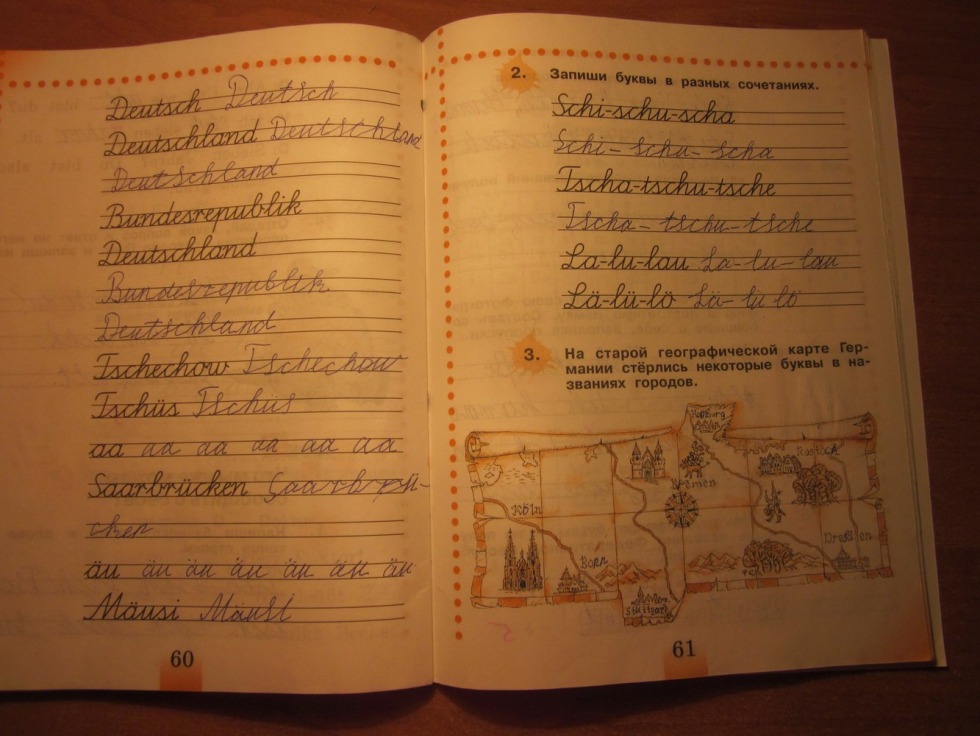 Deutsch Deutsch
Deutschland Deutschland
Deutschland
Bundesrepublik
Deutschland
Bundesrepublik
Deutschland
Tschechow Tschechow
Tschüs Tschüs
aa aa aa aa aa aa
Saarbrücken Saarbrü-
cken
äu äu äu äu äu äu äu
Mäusi Mäusi
60
2. Запиши буквы в разных сочетаниях.
Schi-schu-scha
Schi-schu-scha
Tscha-tschu-tsche
Tscha-tschu-tsche
La-lu-lau La-lu-lau
Lä-lü-lö Lä-lü lö
3. На старой географической карте Гер-
мании стёрлись некоторые буквы в на-
званиях городов.
Rostock
Köln
Dresden
Bonn
Stuttgart
61